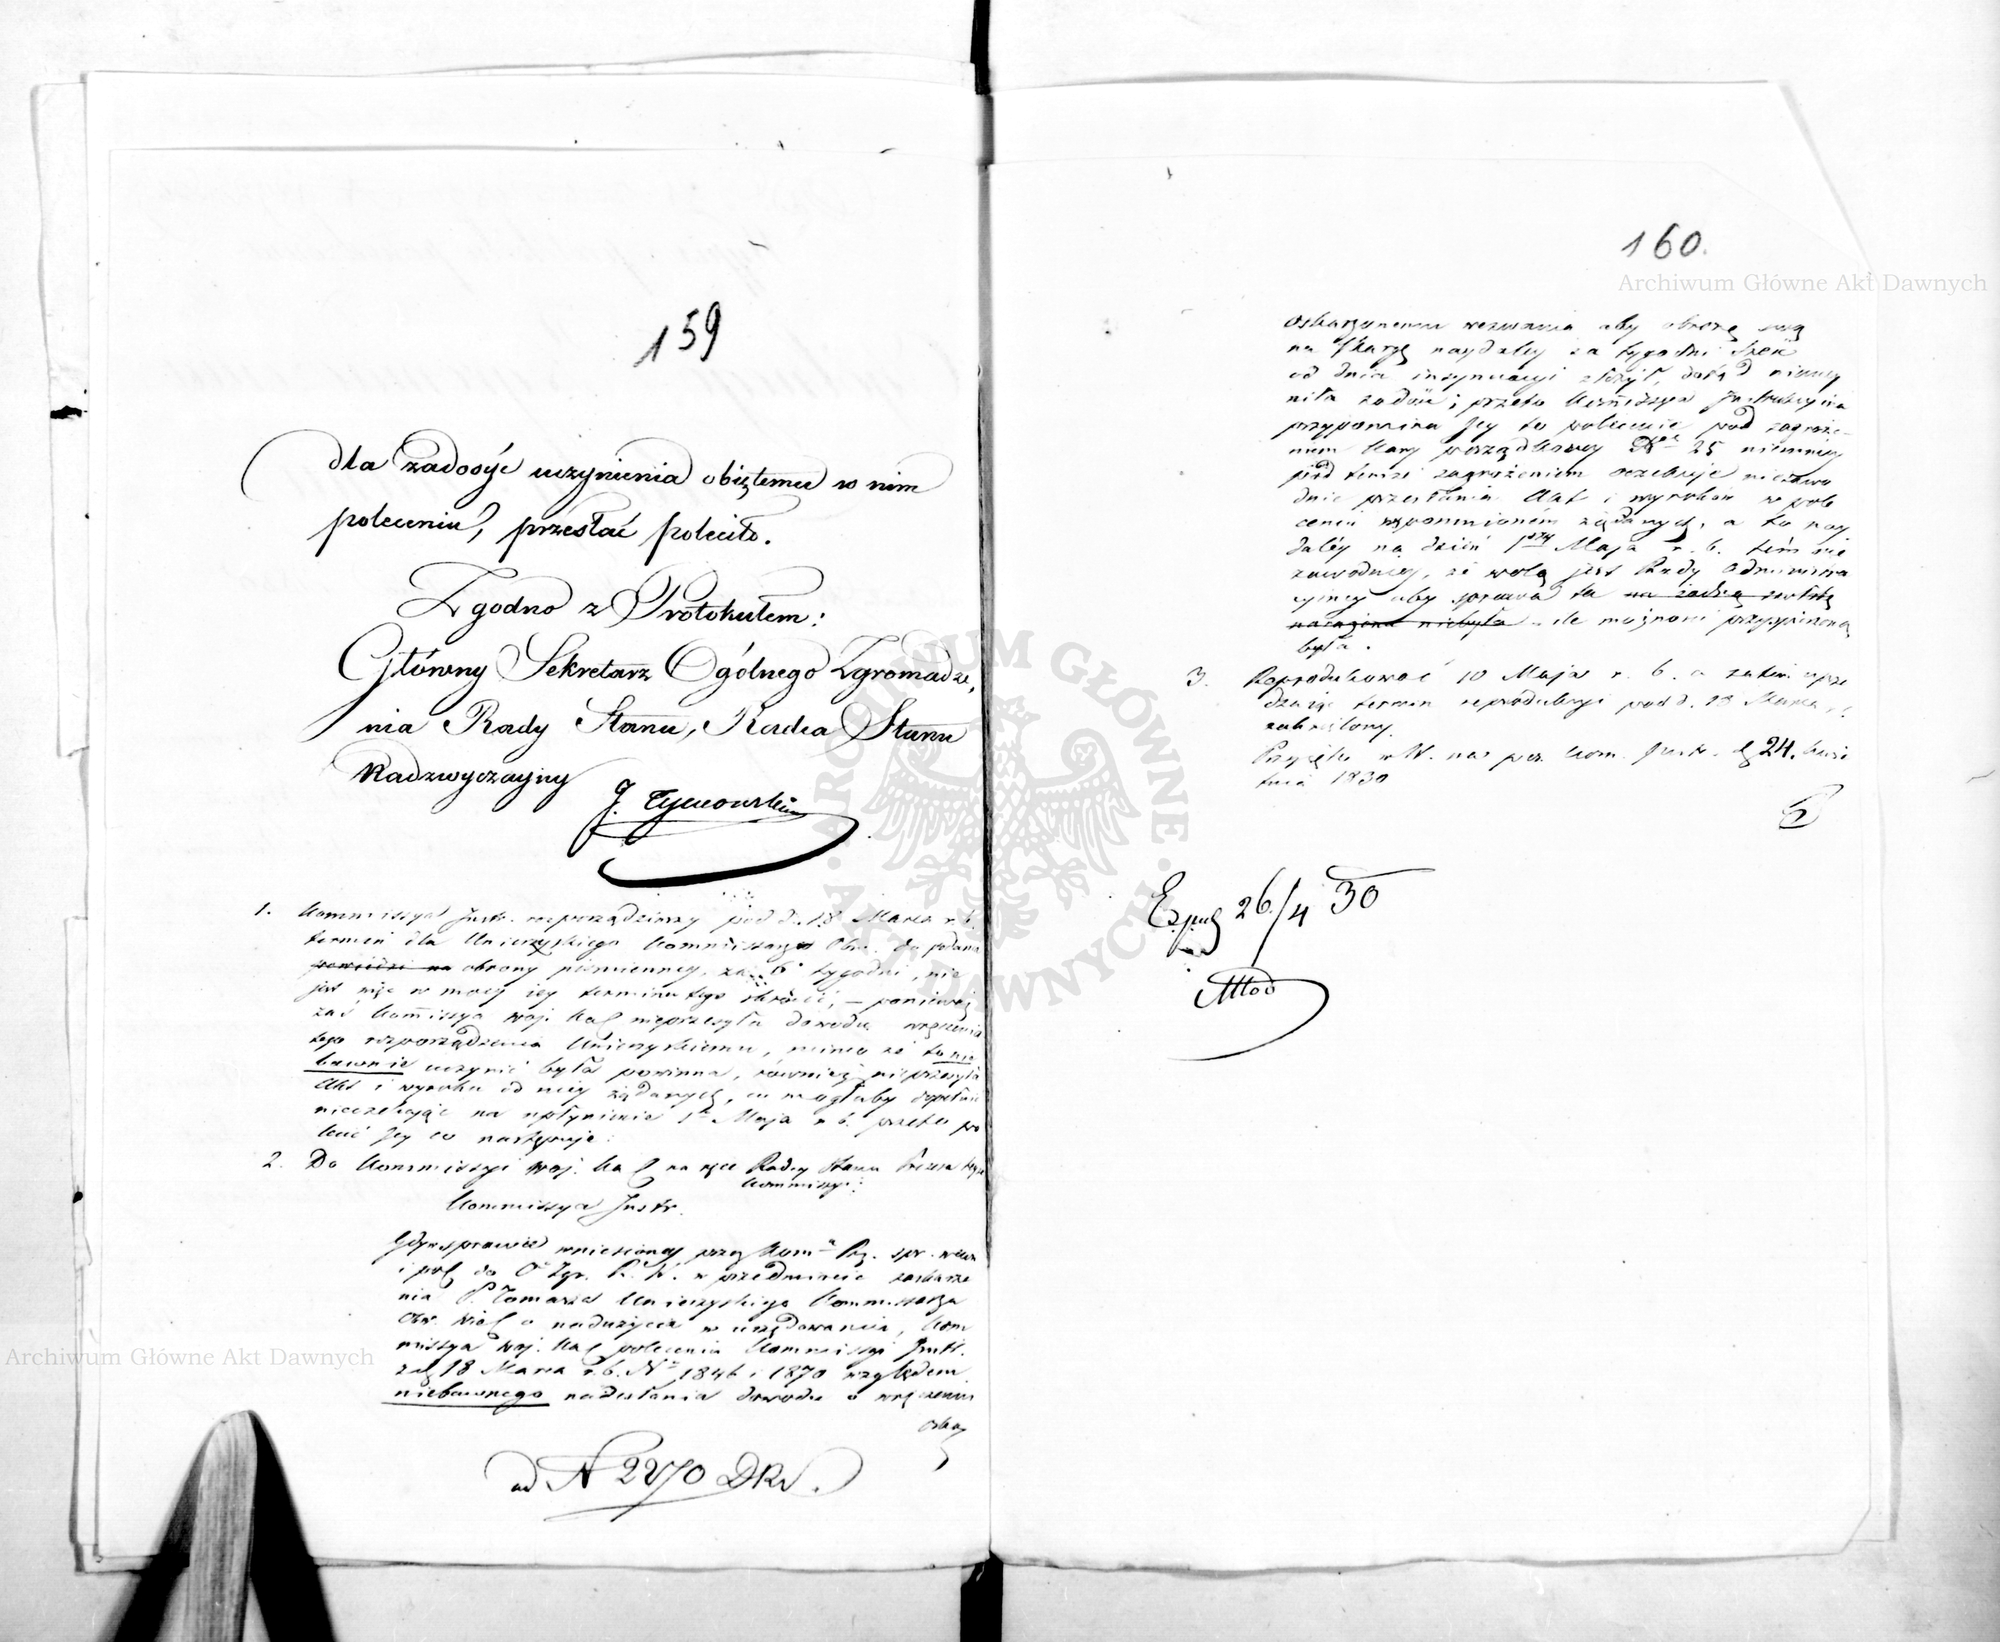 159
dla zadosyć uczynienia obiętemu w nim
poleceniu, przesłać poleciło.
Zgodno z Protokułem:
Główny Sekretarz Ogólnego Zgromadze,
nia Rady Stanu, Radca Stanu
Nadzwyczayny
J. Tymowski
1. Kommissya Instr. rozporządziwszy pod d. 18 Marca r. b.
termin dla Unierzyskiego Kommissarza Obw. do podania
obrony piśmienney, za 6 tygodni, nie
jest więc w mocy iey terminu tego skrócić, – ponieważ
zaś Kommissya Woj. Kal nieprzesyła dowodu wręczenia
tego rozporządzenia Unierzyskiemu, mimo że to nie
bawnie uczynić była powinna, również nieprzesyła
Akt i wyroku od niey żądanych, co mogłaby dopełnić
nieczekając na upłynienie 1o Maja r. b. przeto po
lecić Jey co następuje:
2. Do Kommissyi Woj. Kal na ręce Radcy Stanu Prezesa teyże
Kommissyi:
Kommissya Instr.
Gdy w sprawie wniesioney przez Kom. Rz. spr. wewn
i pol do O. Zgr. R. S. w przedmiocie zaskarże
nia P. Tomasza Unierzyskiego Kommissarza
Obw. o nadużycia w urzędowaniu, Kom
missya Woj. Kal polecenia Kommissyi Instr.
z d 18 Marca r. b. No 1846 i 1870 względem
niebawnego nadesłania dowodu o wręczeniu
oskar
ad N 2270 DRS.
160.
Archiwum Główne Akt Dawnych
oskarżonemu wezwania aby obronę swą
na skargę naydaley za tygodni sześć
od dnia insynuacyi złożył, dotąd nieuczy
niła zadość; przeto Kommissya Instrukcyina
przypomina Jey to polecenie pod zagroże-
niem kary porządkowey 25 niemniey
pod temże zagrożeniem oczekuje niezawo
dnie przesłania Akt i wyroków w pole
ceniu wspomnioném żądanych, a to nay
daléy na dzień 1szy Maja r. b. tém nie
zawodniey, że wolą jest Rady Administra
cyiney aby sprawa ta na żadną zwłokę
narażona niebyła ile możności przyspieszoną
była.
3. Reprodukować 10 Maja r. b. a zatem uprze
dzając termin reprodukcyi pod d. 18 Marca r. b.
zakreślony.
Przyjęto na pos. Kom. Instr. d 24. Kwie
tnia 1830
Exped 26/4 30
Archiwum Główne Akt Dawnych
ARCHIWUM GŁÓWNE · AKT DAWNYCH ·